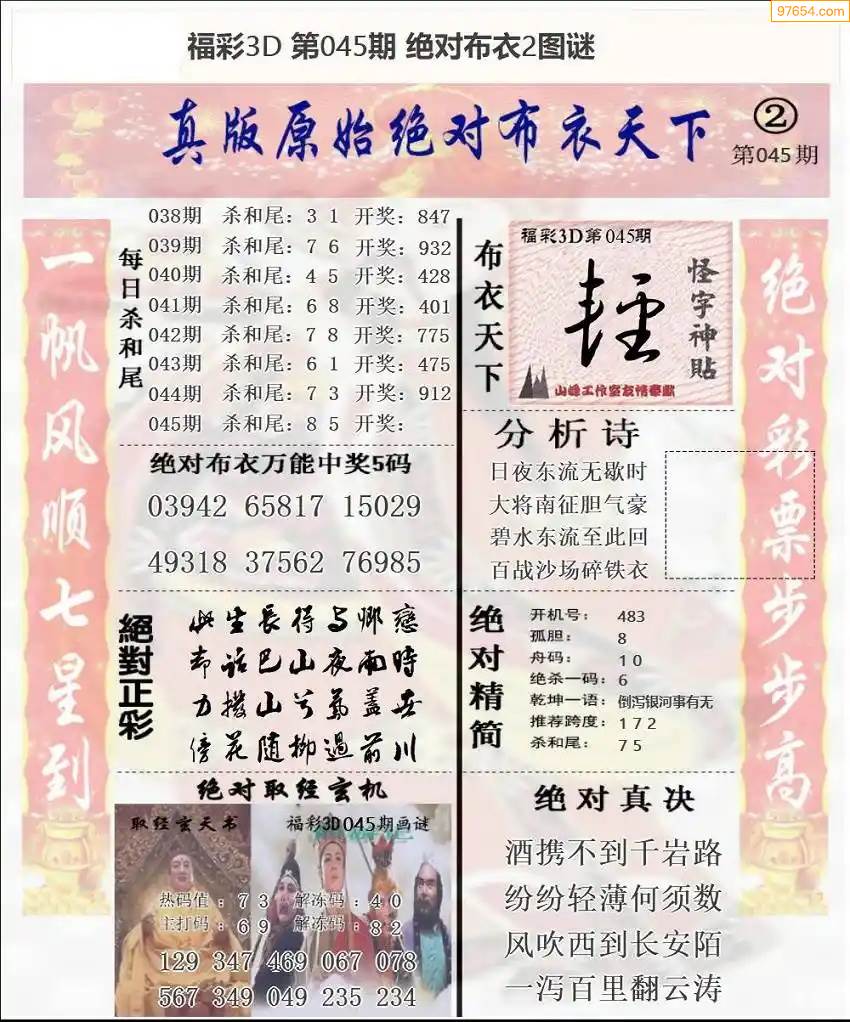 97654.com
福彩3D 第045期 绝对布衣2图谜
真版原始绝对布衣天下
②
第045期
一帆风顺七星到
每日杀和尾
038期 杀和尾：3 1 开奖：847
039期 杀和尾：7 6 开奖：932
040期 杀和尾：4 5 开奖：428
041期 杀和尾：6 8 开奖：401
042期 杀和尾：7 8 开奖：775
043期 杀和尾：6 1 开奖：475
044期 杀和尾：7 3 开奖：912
045期 杀和尾：8 5 开奖：
绝对布衣万能中奖5码
03942 65817 15029
49318 37562 76985
絕對正彩
此生長得与鄉戀
却话巴山夜雨時
力拨山兮氣蓋世
傍花随柳過前川
绝对取经玄机
取经玄天书
福彩3D045期画谜
热码值：7 3 解冻码：4 0
主打码：6 9 解冻码：8 2
129 347 469 067 078
567 349 049 235 234
布衣天下
福彩3D第045期
怪字神貼
山峰工作室友情奉献
分析诗
日夜东流无歇时
大将南征胆气豪
碧水东流至此回
百战沙场碎铁衣
绝对精简
开机号：483
孤胆：8
舟码：1 0
绝杀一码：6
乾坤一语：倒泻银河事有无
推荐跨度：1 7 2
杀和尾：7 5
绝对真决
酒携不到千岩路
纷纷轻薄何须数
风吹西到长安陌
一泻百里翻云涛
绝对彩票步步高